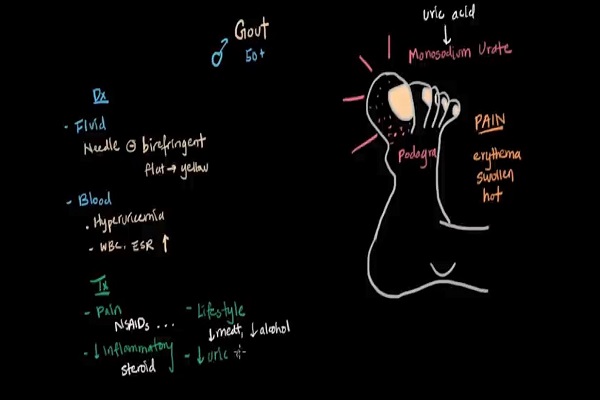 Gout
♂ 50+
Dx
- Fluid
Needle ⊖ birefringent
flat → yellow
- Blood
• Hyperuricemia
- WBC, ESR ↑
Tx
- Pain
NSAIDs ...
- ↓ Inflammatory
steroid
- Lifestyle
↓ meat, ↓ alcohol
- ↓ uric
uric acid
↓
Monosodium Urate
Podagra
PAIN
erythema
swollen
hot